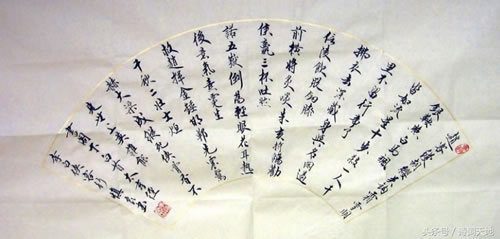 趙客縵胡纓吳鉤霜雪明
銀鞍照白馬颯
沓如流星十步殺一人千
里不留行事了
拂衣去深藏身與名閑過
信陵飲脫劍膝
前橫將炙啖朱亥持觴勸
侯嬴三杯吐然
諾五嶽倒為輕眼花耳熱
後意氣素霓生
救趙揮金槌邯鄲先震驚
千秋二壯士烜
赫大梁城縱死俠骨香不
慚世上英誰能
書閣下白首太玄經
李白俠客行 書
头条号 / 诗词天地